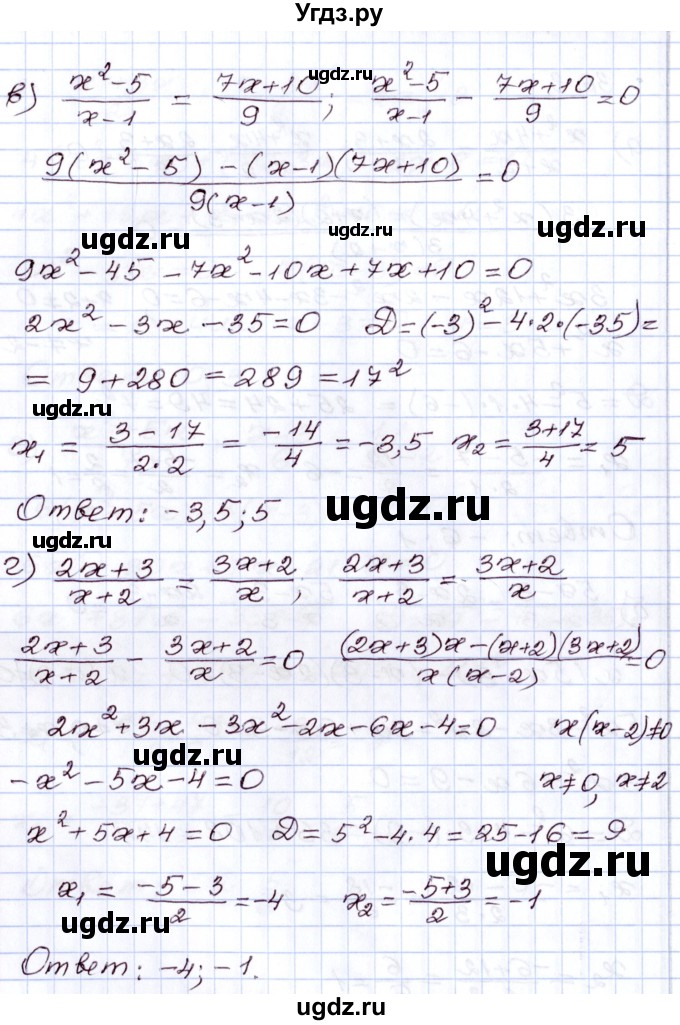 Угдз.ру
в) (x²-5)/(x-1) = (7x+10)/9; (x²-5)/(x-1) - (7x+10)/9 = 0
ugdz.ru
(9(x²-5) - (x-1)(7x+10))/(9(x-1)) = 0
ugdz.ru ugdz.ru ugdz.ru
9x²-45-7x²-10x+7x+10=0
2x²-3x-35=0 D=(-3)²-4·2·(-35)=
= 9+280=289=17²
ugdz.ru ugdz.ru
x₁ = (3-17)/(2·2) = (-14)/4 = -3,5 x₂ = (3+17)/4 = 5
Ответ: -3,5; 5 ugdz.ru
ugdz.ru ugdz.ru
г) (2x+3)/(x+2) = (3x+2)/x; (2x+3)/(x+2) = (3x+2)/x
(2x+3)/(x+2) - (3x+2)/x = 0 ((2x+3)x-(x+2)(3x+2))/(x(x-2)) = 0
2x²+3x-3x²-2x-6x-4=0 x(x-2)≠0
ugdz.ru
-x²-5x-4=0 x≠0, x≠2
x²+5x+4=0 D=5²-4·4=25-16=9
ugdz.ru
x₁ = (-5-3)/2 = -4 x₂ = (-5+3)/2 = -1
ugdz.ru ugdz.ru
Ответ: -4; -1.
ugdz.ru